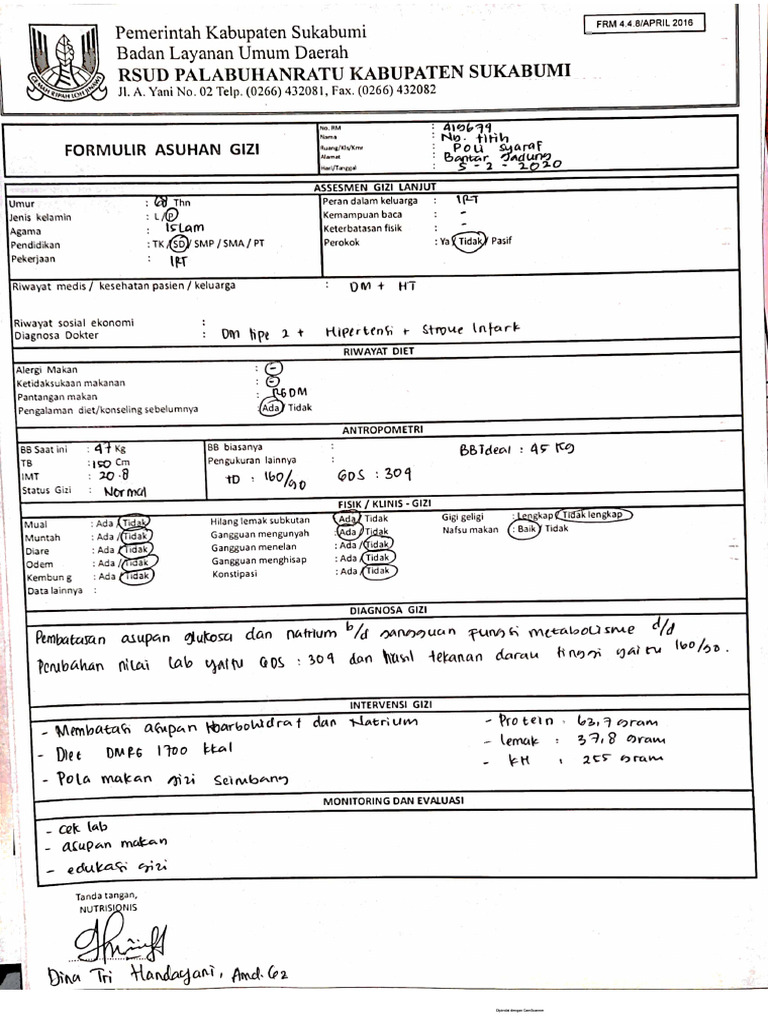 FRM 4.4.8/APRIL 2016
Pemerintah Kabupaten Sukabumi
Badan Layanan Umum Daerah
RSUD PALABUHANRATU KABUPATEN SUKABUMI
Jl. A. Yani No. 02 Telp. (0266) 432081, Fax. (0266) 432082
GEMAH RIPAH LOH JINAWI
FORMULIR ASUHAN GIZI
No. RM : 410679
Nama : Ny. titih
Ruang/Kls/Kmr : Poli syaraf
Alamat : Bantar Gadung
Hari/Tanggal : 5 - 2 - 2020
ASSESMEN GIZI LANJUT
Umur : 68 Thn
Jenis kelamin : L / P
Agama : Islam
Pendidikan : TK / SD / SMP / SMA / PT
Pekerjaan : IRT
Peran dalam keluarga : IRT
Kemampuan baca : -
Keterbatasan fisik : -
Perokok : Ya / Tidak / Pasif
Riwayat medis / kesehatan pasien / keluarga : DM + HT
Riwayat sosial ekonomi :
Diagnosa Dokter : Dm tipe 2 + Hipertensi + Stroke Infark
RIWAYAT DIET
Alergi Makan : -
Ketidaksukaan makanan : -
Pantangan makan : RGDM
Pengalaman diet/konseling sebelumnya : Ada / Tidak
ANTROPOMETRI
BB Saat ini : 47 Kg
TB : 150 Cm
IMT : 20.8
Status Gizi : Normal
BB biasanya :
Pengukuran lainnya :
TD : 160/90 GDS : 309
BB Ideal : 45 Kg
FISIK / KLINIS - GIZI
Mual : Ada / Tidak
Muntah : Ada / Tidak
Diare : Ada / Tidak
Odem : Ada / Tidak
Kembung : Ada / Tidak
Data lainnya :
Hilang lemak subkutan : Ada / Tidak
Gangguan mengunyah : Ada / Tidak
Gangguan menelan : Ada / Tidak
Gangguan menghisap : Ada / Tidak
Konstipasi : Ada / Tidak
Gigi geligi : Lengkap / Tidak lengkap
Nafsu makan : Baik / Tidak
DIAGNOSA GIZI
Pembatasan asupan glukosa dan natrium b/d gangguan fungsi metabolisme d/d
Perubahan nilai lab yaitu GDS : 309 dan hasil tekanan darah tinggi yaitu 160/90.
INTERVENSI GIZI
- Membatasi asupan Karbohidrat dan Natrium
- Diet DMRG 1700 kkal
- Pola makan gizi seimbang
- Protein : 63,7 gram
- lemak : 37,8 gram
- KH : 255 gram
MONITORING DAN EVALUASI
- cek lab
- asupan makan
- edukasi gizi
Tanda tangan,
NUTRISIONIS
Dina Tri Handayani, Amd. Gz
Dipindai dengan CamScanner